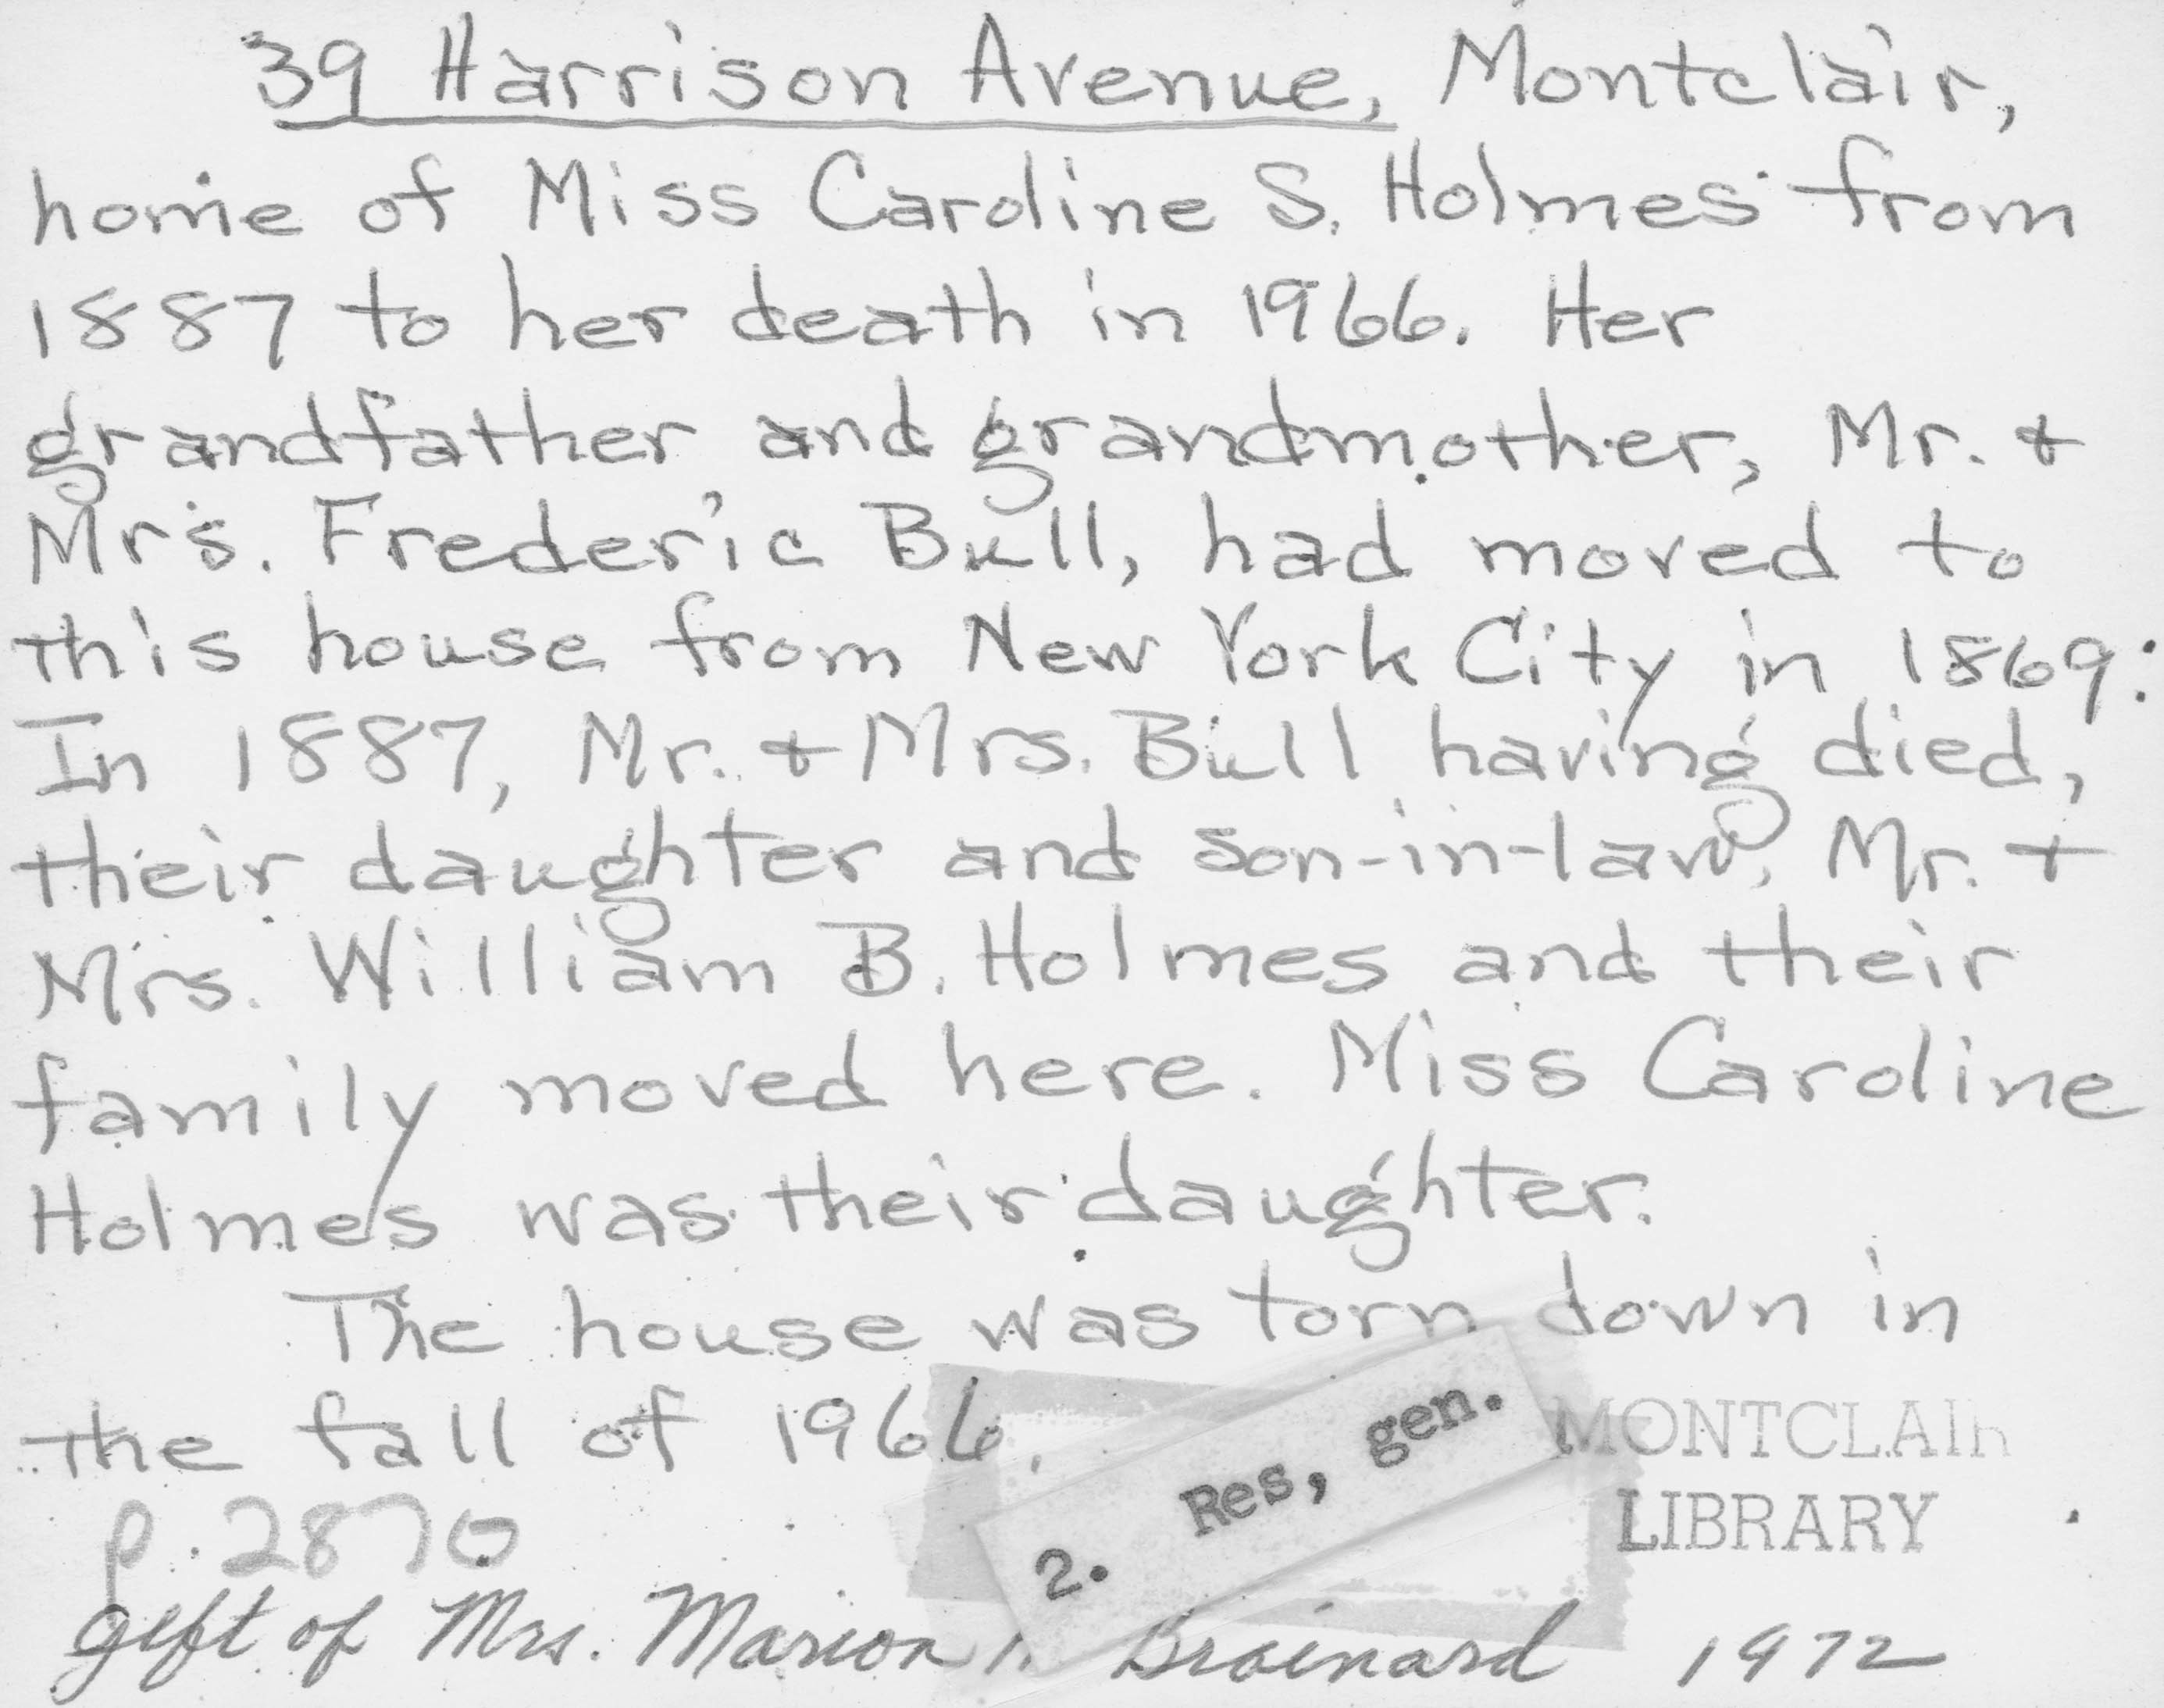 39 Harrison Avenue, Montclair,
home of Miss Caroline S. Holmes from
1887 to her death in 1966. Her
grandfather and grandmother, Mr. &
Mrs. Frederic Bull, had moved to
this house from New York City in 1869.
In 1887, Mr. & Mrs. Bull having died,
their daughter and son-in-law, Mr. &
Mrs. William B. Holmes and their
family moved here. Miss Caroline
Holmes was their daughter.
The house was torn down in
the fall of 1966.
2. Res, gen.
MONTCLAIR
LIBRARY
p. 2870
gift of Mrs. Marion Brainard 1972